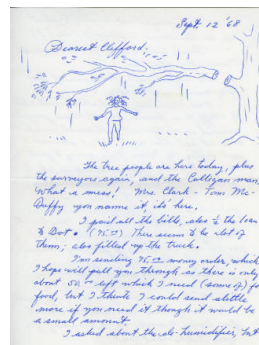 Sept. 12 '68
Dearest Clifford,
The tree people are here today, plus
the surveyors again, and the Culligan man.
What a mess! Mrs. Clark - Tom Mc-
Duffy you name it, it's here.
I paid all the bills, also ½ the loan
to Dot. (75.00) There seem to be lot of
them; also filled up the truck.
I'm sending 75.00 money order, which
I hope will pull you through as there is only
about 50.00 left which I need (some of) for
food, but I think I could send a little
more if you need it though it would be
a small amount.
I asked about the de-humidifier, but